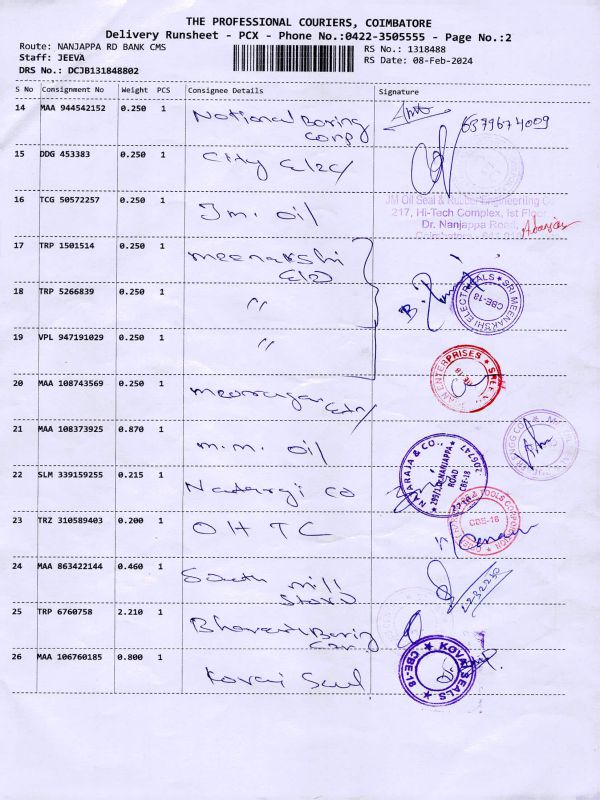 THE PROFESSIONAL COURIERS, COIMBATORE
Delivery Runsheet - PCX - Phone No.:0422-3505555 - Page No.:2
Route: NANJAPPA RD BANK CMS
RS No.: 1318488
Staff: JEEVA
RS Date: 08-Feb-2024
DRS No.: DCJB131848802
S No Consignment No Weight PCS Consignee Details Signature
14 MAA 944542152 0.250 1 National Boring
Corp
6379674009
15 DDG 453383 0.250 1 City Elec/
16 TCG 50572257 0.250 1 Jm. oil
JM Oil Seal & Rubber Engineering Co
217, Hi-Tech Complex, Ist Floor
Dr. Nanjappa Road,
17 TRP 1501514 0.250 1 meenakshi
Ele)
18 TRP 5266839 0.250 1 "
SRI MEENAKSHI ELECTRICALS CBE-18
19 VPL 947191029 0.250 1 "
ENTERPRISES
20 MAA 108743569 0.250 1
21 MAA 108373925 0.870 1 m.m. oil
NAJARAJA & CO.,
299/1, D. NANJAPPA
ROAD
CBE-18
22 SLM 339159255 0.215 1 Co
TOOLS CORPORATION
CBE-18
23 TRZ 310589403 0.200 1 O H T C
24 MAA 863422144 0.460 1 South mill
Store
25 TRP 6760758 2.210 1 Bharat Boring
26 MAA 106760185 0.800 1 Kovai Seal
KOVAI SEALS CBE-18